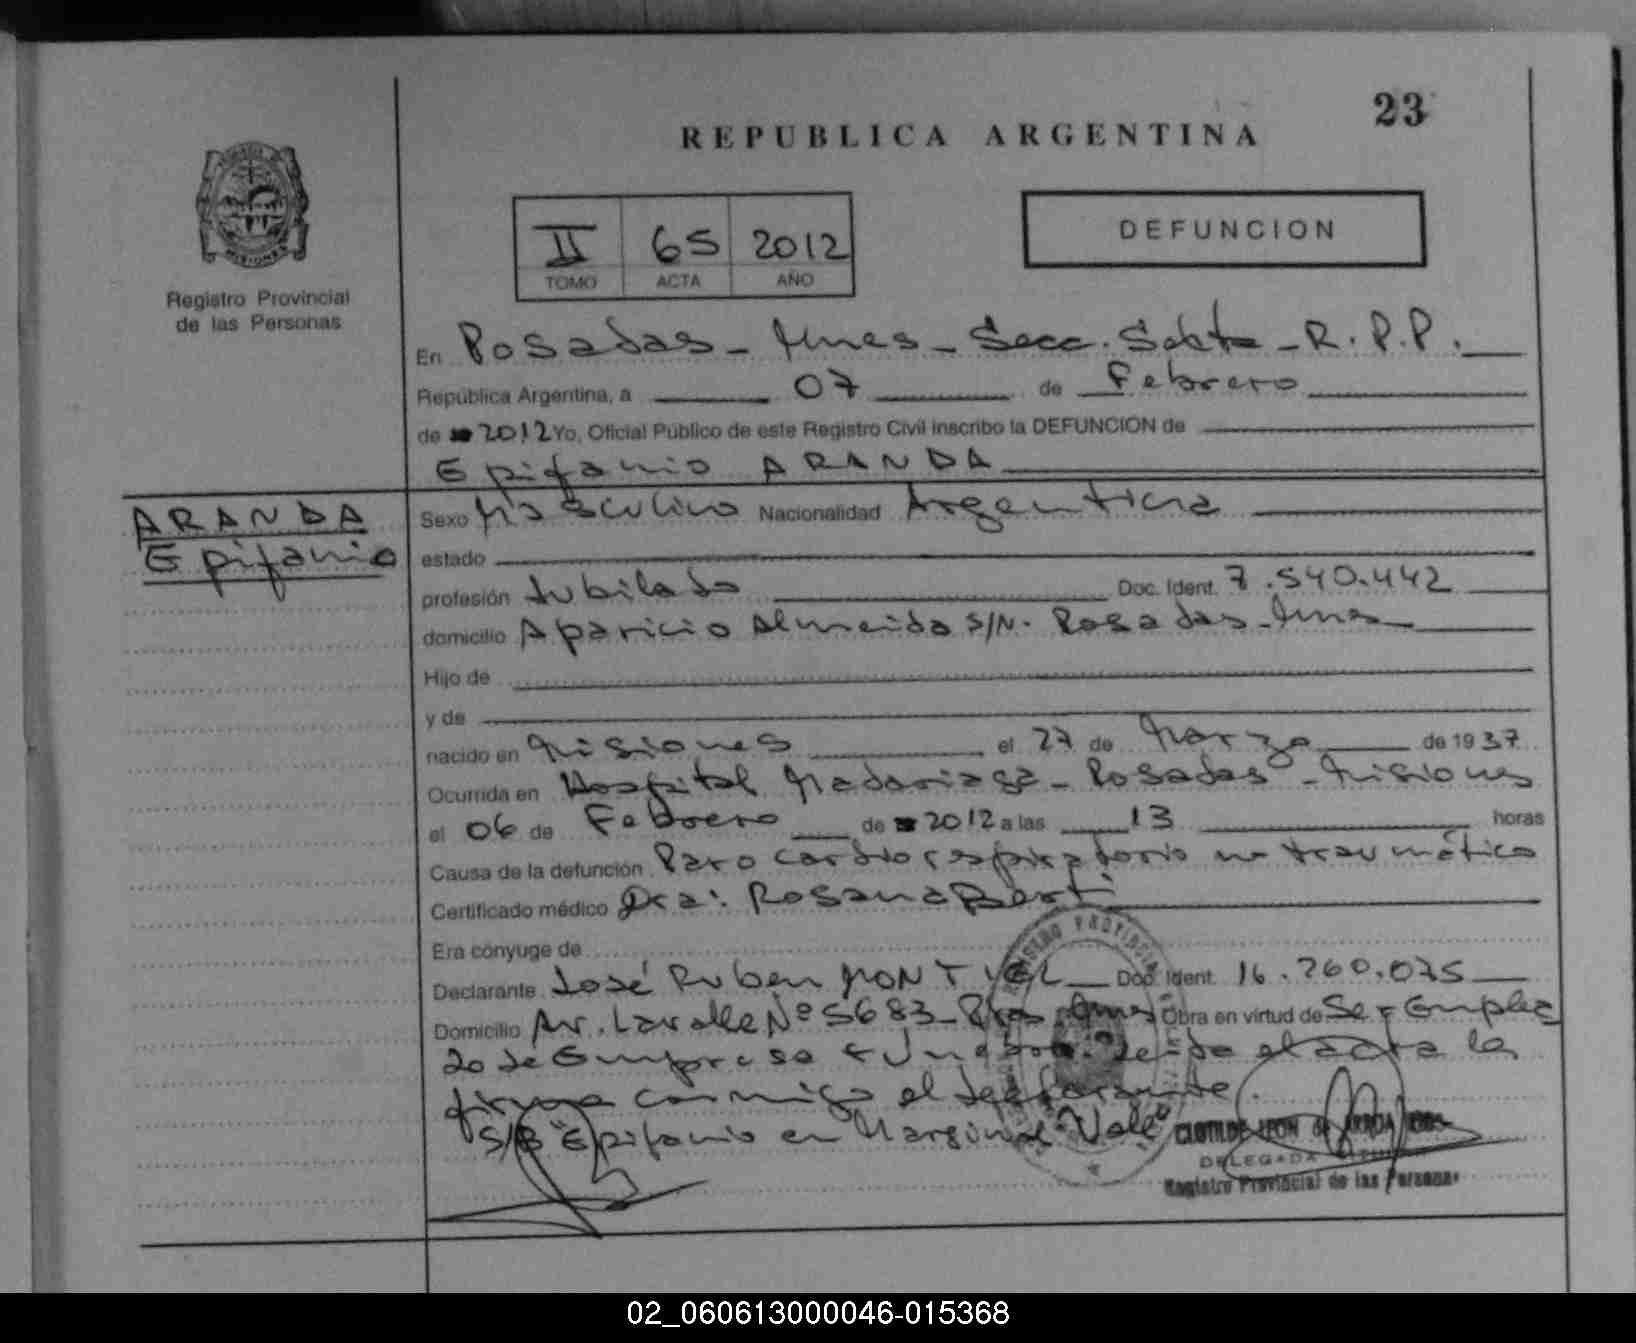 23
REPUBLICA ARGENTINA
II 65 2012
TOMO ACTA AÑO
DEFUNCION
MISIONES
Registro Provincial
de las Personas
En Posadas - Mnes - Secc. Sexta - R.P.P.
República Argentina, a 07 de Febrero
de 2012 Yo, Oficial Público de este Registro Civil inscribo la DEFUNCION de
Epifanio ARANDA
ARANDA
Epifanio
Sexo Masculino Nacionalidad Argentina
estado
profesión Jubilado Doc. Ident. 7.540.442
domicilio Aparicio Almeida S/N. Posadas - Mnes
Hijo de
y de
nacido en Misiones el 27 de Marzo de 1937
Ocurrida en Hospital Madariaga - Posadas - Misiones
el 06 de Febrero de 2012 a las 13 horas
Causa de la defunción Paro cardiorespiratorio no traumático
Certificado médico Dra: Rosana Berti
Era cónyuge de
Declarante José Ruben MONTIEL Doc. Ident. 16.760.075
Domicilio Av. Lavalle Nº 5683 - Pdas - Mnes Obra en virtud de Ser Emplea
do de Empresa Funebre. Leida el acta la
firma conmigo el declarante.
S/B "Epifanio en Marginal" Vale
REGISTRO PROVINCIAL
CLOTILDE LEON de
DELEGADA
Registro Provincial de las Personas
02_060613000046-015368